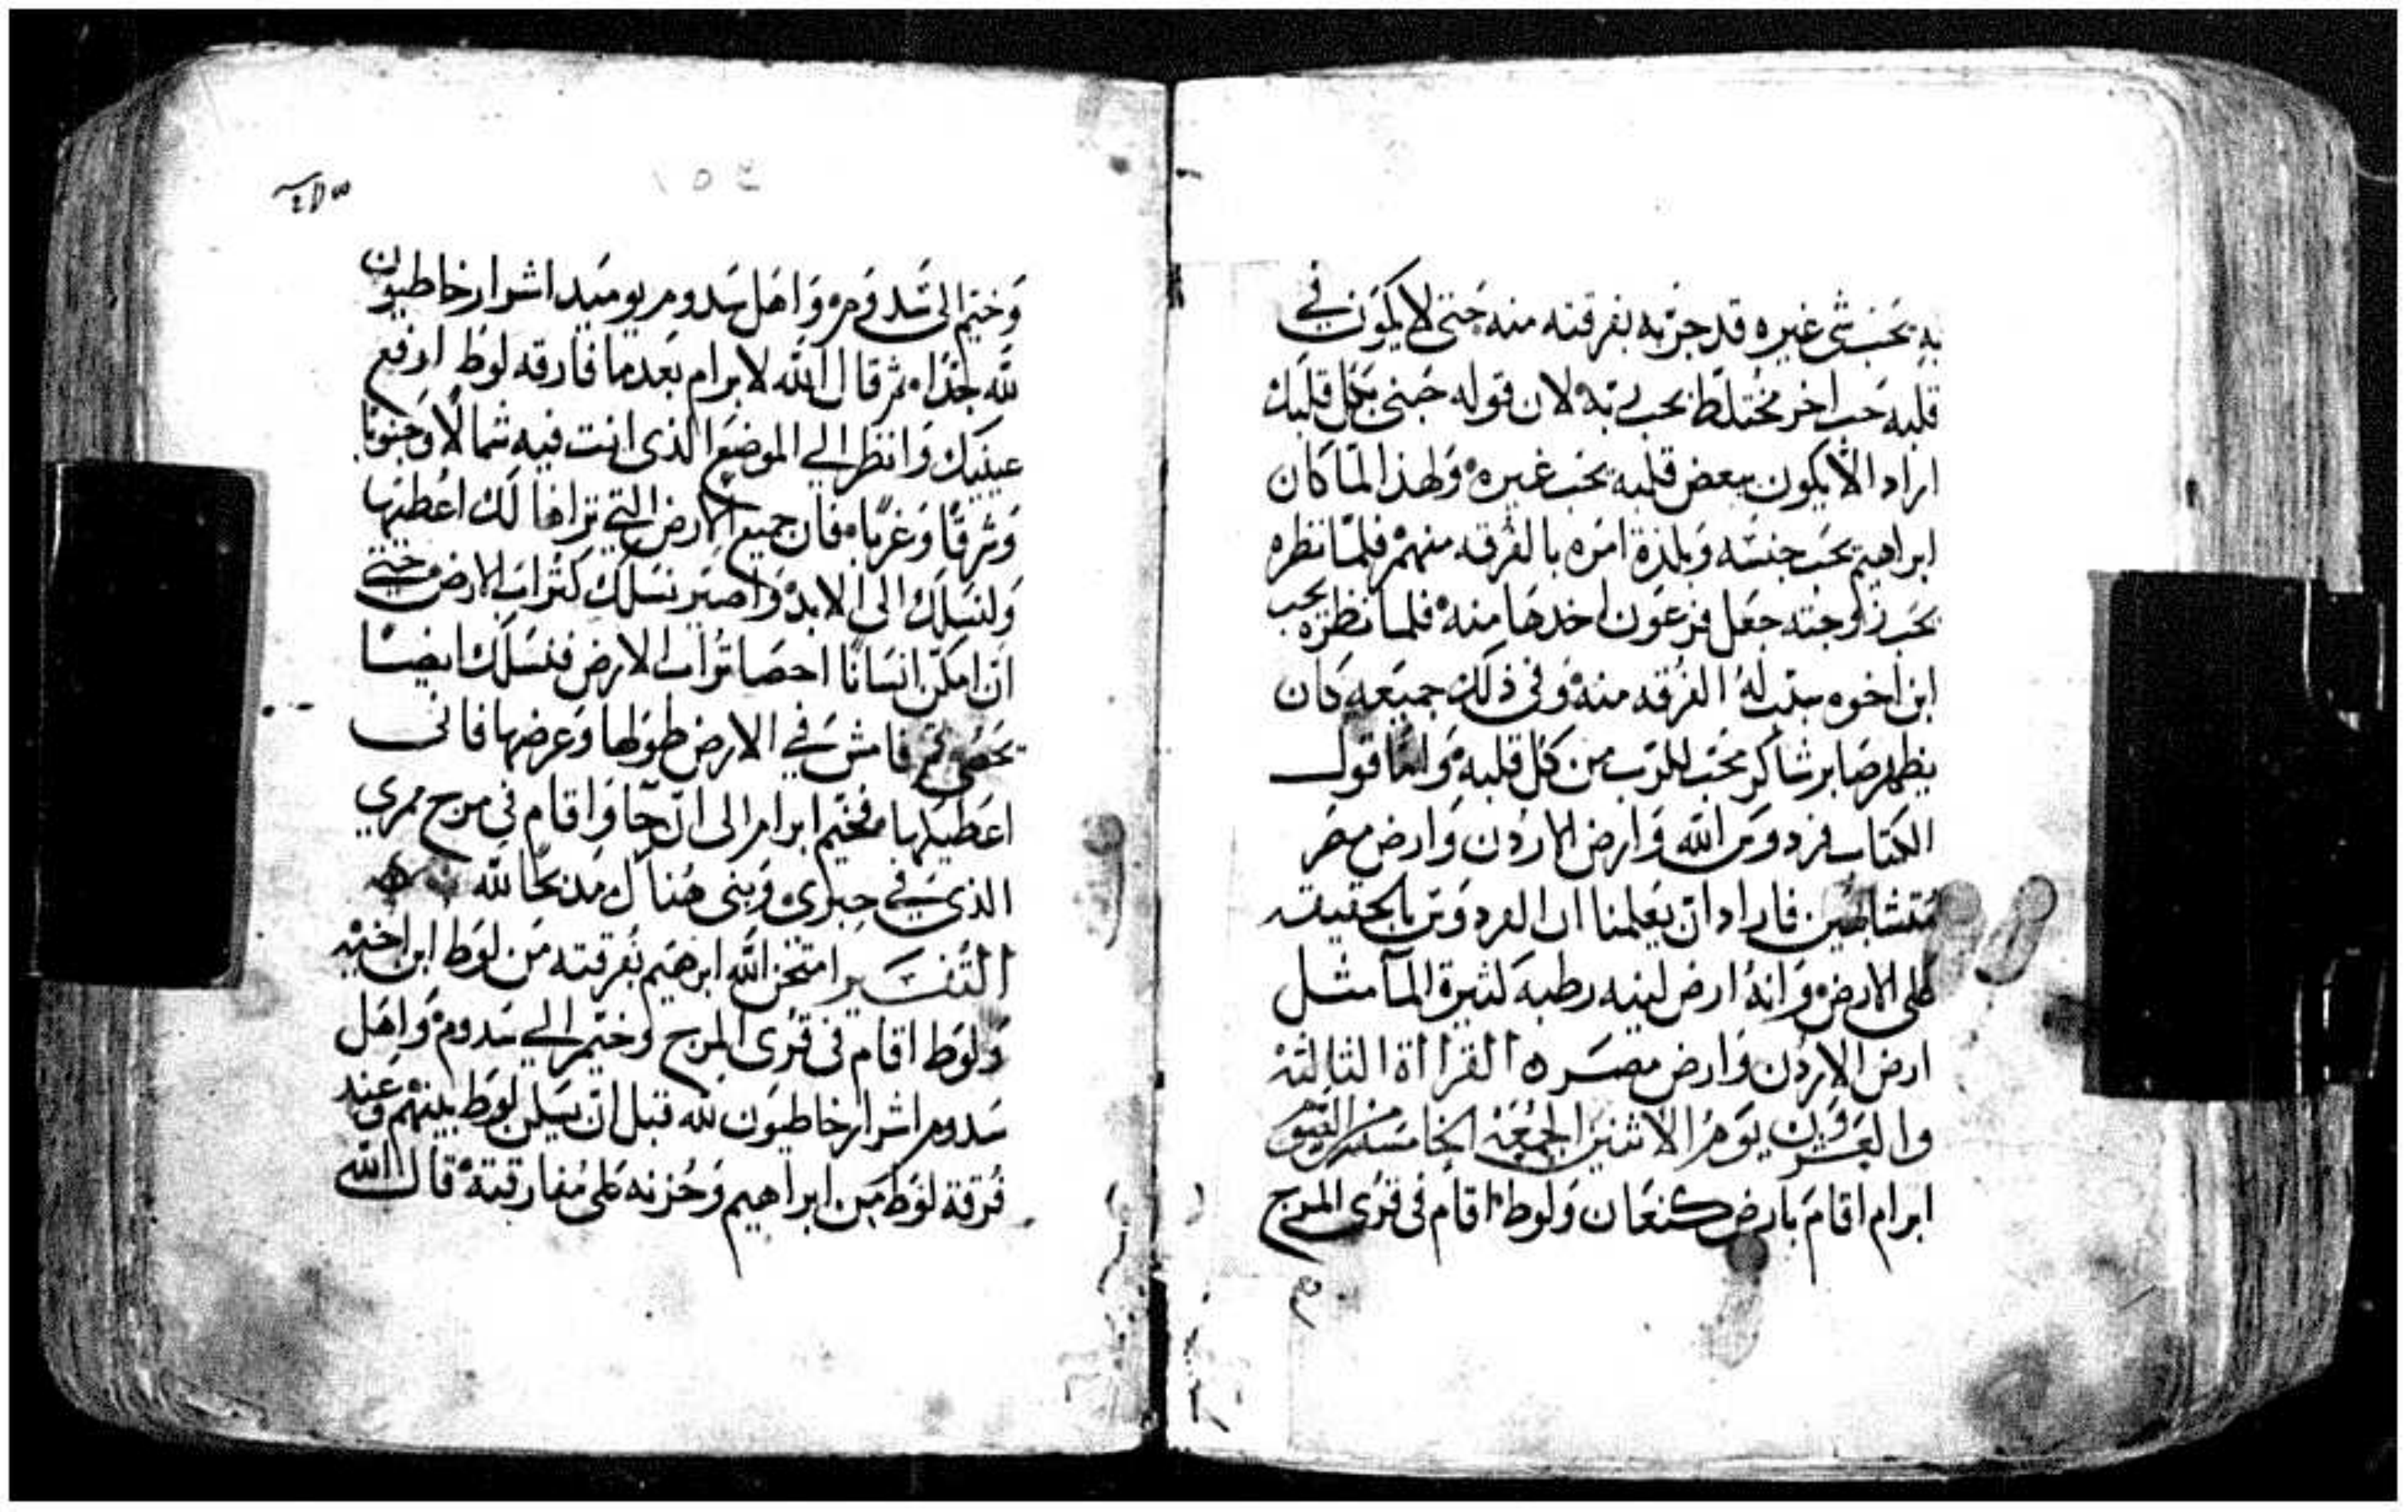 به يحب شى غيره قد جربه بفرقته منه حتى لا يكون في
قلبه حب اخر مختلط بحب ربه لان قوله حبنى بكل قلبك
اراد الا يكون ببعض قلبه يحب غيره ولهذا لما كان
ابراهيم يحب جنسه وبلده امره بالفرقه منهم فلما نظره
يحب زوجته جعل فرعون اخدها منه فلما نظره يحب
ابن اخوه سبب له الفرقه منه وفى ذلك جميعه كان
يظهر صابر شاكر محب للرب من كل قلبه واما قول
الكتاب فردوس الله وارض الاردن وارض مصر
متشابهين فاراد ان يعلمنا ان الفردوس بالحقيقه
على الارض وانه ارض لينه رطبه كثيرة الما مثل
ارض الاردن وارض مصر ه القرااة الثالثة
والعشرون يوم الاثنين الجمعة الخامسة من الصوم
ابرام اقام بارض كنعان ولوط اقام فى قرى المرج
وخيم الى سدوم واهل سدوم يوميد اشرار خاطيون
لله جدا ثم قال الله لابرام بعدما فارقه لوط ارفع
عينيك وانظر الي الموضع الذى انت فيه شمالا وجنوبا
وشرقا وغربا فان جميع الارض التي تراها لك اعطيها
ولنسلك الى الابد واصير نسلك كتراب الارض حتي
ان امكن انسانا احصا تراب الارض فنسلك ايضا
يحصى قم فامش في الارض طولها وعرضها فانى
اعطيكها فخيم ابرام الى ان جا واقام في مرج ممري
الذى في حبرى وبنى هناك مدبحا لله
التفسير امتحن الله ابرهيم بفرقته من لوط ابن اخيه
ولوط اقام فى قرى المرج وخيم الي سدوم واهل
سدوم اشرار خاطيون لله قبل ان يسكن لوط بينهم وعند
فرقة لوط من ابراهيم وحزنه على مفارقته قال الله